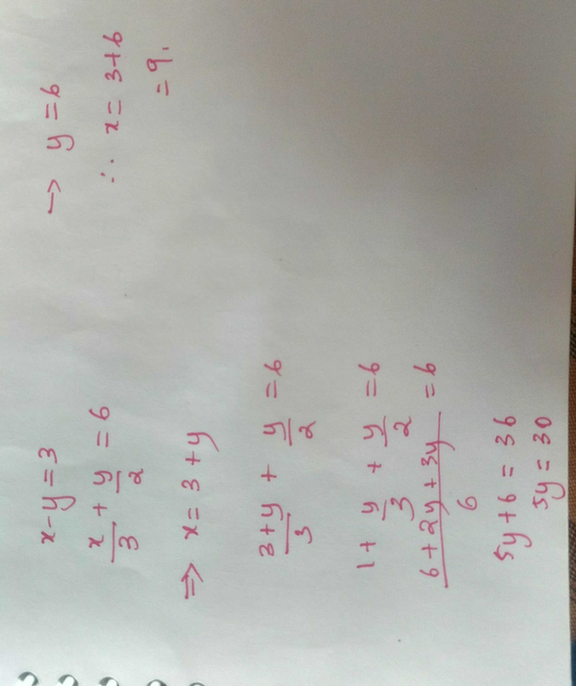 x - y = 3
x/3 + y/2 = 6
⇒ x = 3 + y
3+y/3 + y/2 = 6
1 + y/3 + y/2 = 6
6+2y+3y/6 = 6
5y + 6 = 36
5y = 30
→ y = 6
∴ x = 3+6
= 9.